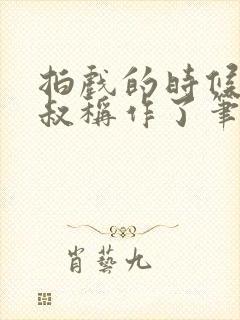 拍戲的時候
叔稱作了筆
肖藝九